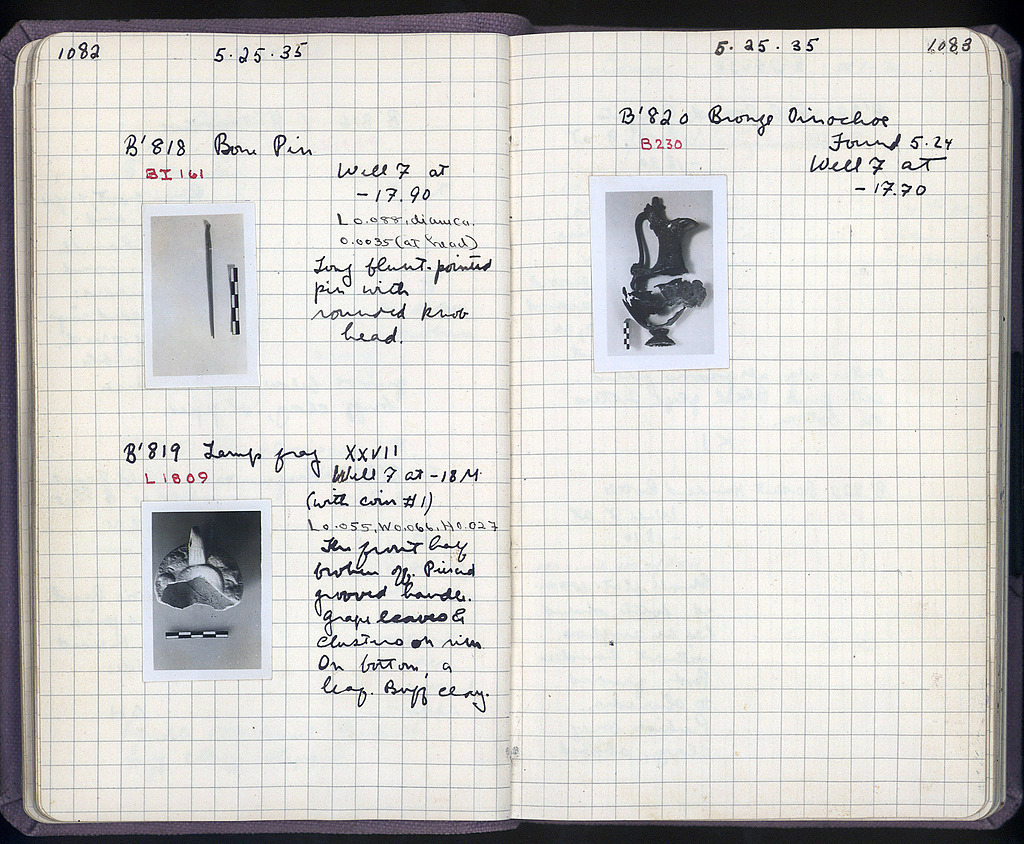 1082 5·25·35
B'818 Bone Pin
BI 161
Well 7 at
-17.90
L 0.088, diam ca.
0.0035 (at head)
Long blunt-pointed
pin with
rounded knob
head.
B'819 Lamp frag XXVII
L 1809
Well 7 at -18 M.
(with coin #1)
L 0.055, W 0.066, H 0.027
The front half
broken off. Pierced
grooved handle.
Grape leaves &
clusters on rim.
On bottom, a
leaf. Buff clay.
5·25·35 1083
B'820 Bronze Oinochoe
B 230
Found 5·24
Well 7 at
-17.70